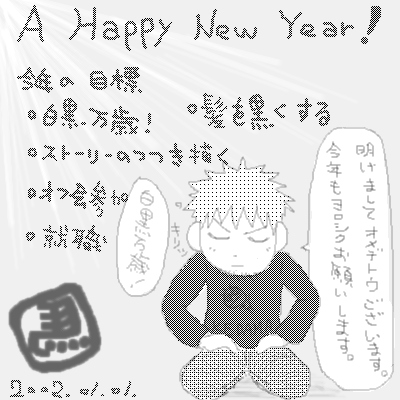 A Happy New Year!
今年の目標
○白黒万歳!
○髪を黒くする
○ストーリーのつづき描く
○オフ会参加
○就職
白黒万歳!
キリッ
明けましてオメデトウございます。
今年もヨロシクお願いします。
2002.01.01.